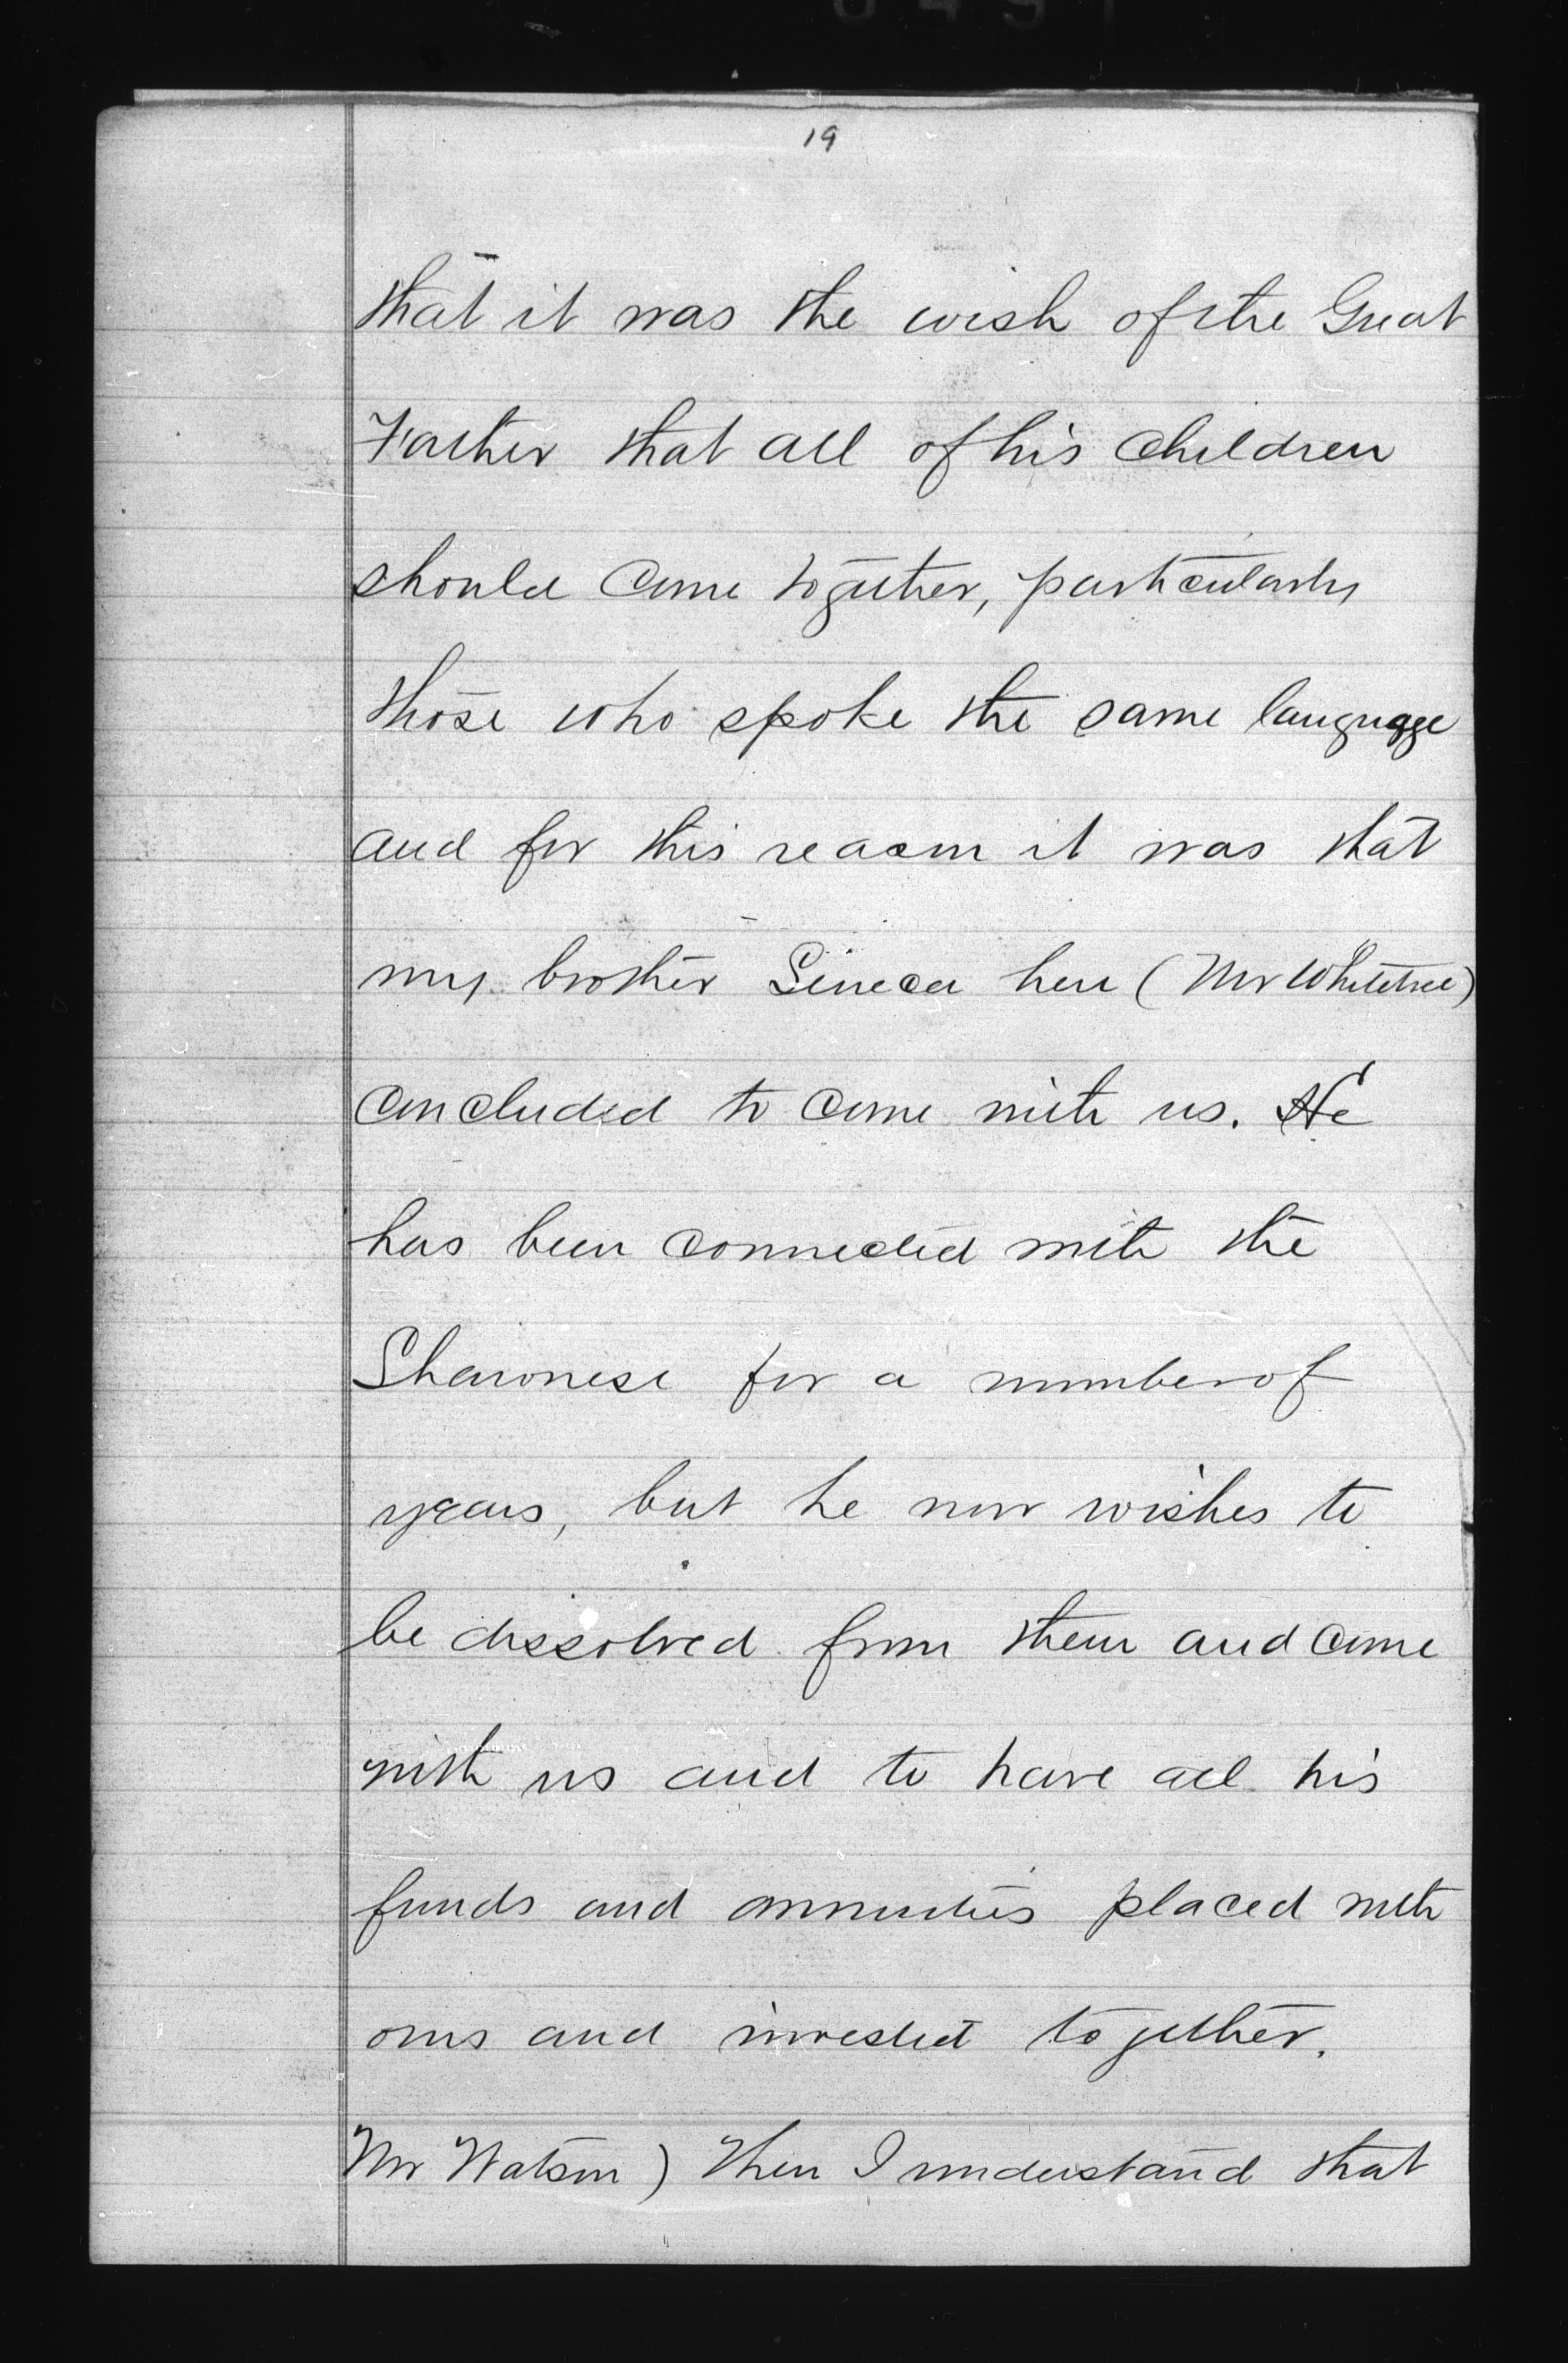 19
that it was the wish of the Great
Father that all of his children
should come together, particularly
those who spoke the same language
and for this reason it was that
my brother Seneca here (Mr Whitetree)
concluded to come with us. He
has been connected with the
Shawnese for a number of
years, but he now wishes to
be dissolved from them and come
with us and to have all his
funds and annuities placed with
ours and invested together.
Mr Watson) Then I understand that